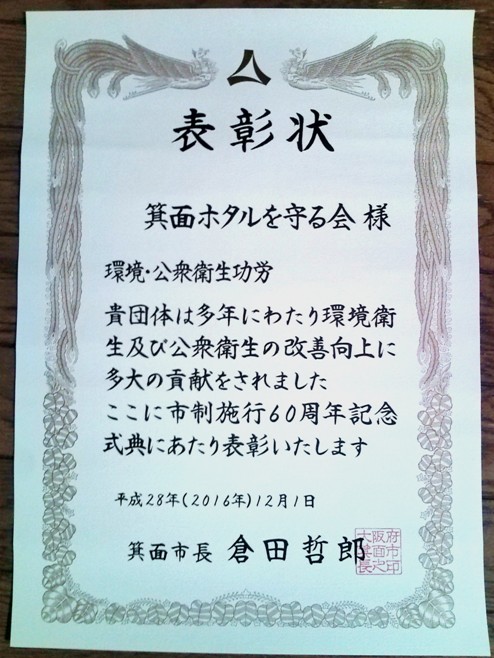 表彰状
箕面ホタルを守る会 様
環境・公衆衛生功労
貴団体は多年にわたり環境衛
生及び公衆衛生の改善向上に
多大の貢献をされました
ここに市制施行60周年記念
式典にあたり表彰いたします
平成28年(2016年)12月1日
箕面市長 倉田哲郎
大阪府
箕面市
長之印